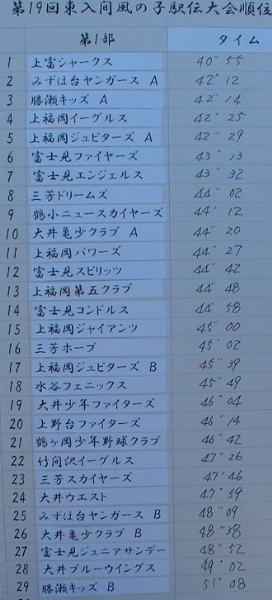 第19回東入間風の子駅伝大会順位
第1部 タイム
1 上富シャークス 40" 55
2 みずほ台ヤンガース A 42" 12
3 勝瀬キッズ A 42" 14
4 上福岡イーグルス 42" 25
5 上福岡ジュピターズ A 42" 29
6 富士見ファイヤーズ 43" 13
7 富士見エンジェルス 43" 32
8 三芳ドリームズ 44" 02
9 鶴小ニュースカイヤーズ 44" 12
10 大井亀少クラブ A 44" 20
11 上福岡パワーズ 44" 27
12 富士見スピリッツ 44" 42
13 上福岡第五クラブ 44" 48
14 富士見コンドルス 44" 58
15 上福岡ジャイアンツ 45" 00
16 三芳ホープ 45" 02
17 上福岡ジュピターズ B 45" 39
18 水谷フェニックス 45" 49
19 大井少年ファイターズ 46" 04
20 上野台ファイターズ 46" 14
21 鶴ヶ岡少年野球クラブ 46" 42
22 竹間沢イーグルス 47" 26
23 三芳スカイヤーズ 47" 46
24 大井ウエスト 47" 59
25 みずほ台ヤンガース B 48" 09
26 大井亀少クラブ B 48" 38
27 富士見ジュニアサンデー 48" 52
28 大井ブルーウイングス 49" 02
29 勝瀬キッズ B 51" 08